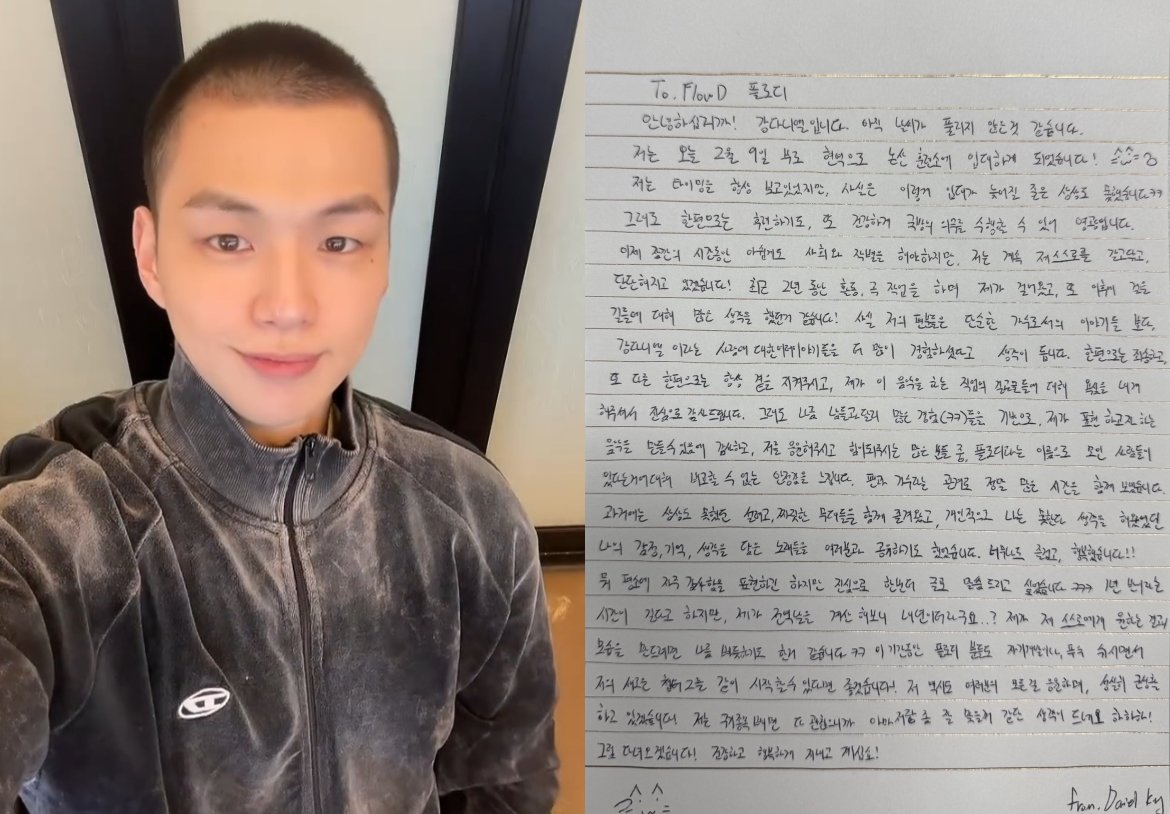 To. Flou.D 플로디
안녕하십니까! 강다니엘입니다. 아직 날씨가 풀리지 않는것 같습니다.
저는 오늘 2월 9일 부로 현역으로 논산 훈련소에 입대하게 되었습니다!
저는 타이밍을 항상 보고있었지만, 사실은 이렇게 입대가 늦어질 줄은 상상도 못했습니다ㅋㅋ
그래도 한편으로는 후련하기도, 또 건강하게 국방의 의무를 수행할 수 있어 영광입니다.
이제 중간의 시간동안 아쉽게도 사회와 작별을 해야하지만, 저는 계속 저 스스로를 갈고닦고,
단단해지고 있겠습니다! 최근 2년 동안 활동, 곡 작업을 하며 제가 걸어왔고, 또 이후에 걸을
길들에 대해 많은 생각을 했던거 같습니다! 사실 저의 팬분들은 단순한 가수로서의 이야기들 보다,
강다니엘 이라는 사람에 대한 여러이야기들을 더 많이 경험하셨다고 생각이 듭니다. 한편으로는 죄송하고,
또 다른 한편으로는 항상 곁을 지켜주시고, 제가 이 음악을 하는 직업의 결과물들에 대해 용기를 내게
해주셔서 진심으로 감사드립니다. 그래도 나름 남들과달리 많은 경험(ㅋㅋ)들을 기반으로, 제가 표현 하고자 하는
음악을 만들수 있음에 감사하고, 저를 응원해주시고 함께해주시는 많은 분들 중, 플로디라는 이름으로 모인 사람들이
있다는거에 대해 비교할 수 없는 안정감을 느낍니다. 팬과 가수라는 관계로 정말 많은 시간을 함께 보냈습니다.
과거에는 상상도 못했던 설레고, 짜릿한 무대들을 함께 즐겨왔고, 개인적으로 나는 못한다 생각을 해왔었던
나의 감정, 기억, 생각을 담은 노래들을 여러분과 공유하기도 했었습니다. 너무나도 즐겁고, 행복했습니다!!
뭐 평소에 자주 감사함을 표현하긴 하지만 진심으로 한번더 글로 말씀 드리고 싶었습니다 ㅋㅋㅋ 1년 반이라는
시간이 길다고 하지만, 제가 전역날을 계산 해보니 내년이더라구요..? 제가 저 스스로에게 원하는 결과
모습을 만드려면 나름 빠듯하기도 한거 같습니다 ㅋㅋ 이 기간동안 플로디 분들도 자기개발이나, 푹 쉬시면서
저의 새로운 챕터 2를 같이 시작 할수 있다면 좋겠습니다! 저 역시도 여러분의 모든걸 응원하며, 성실히 군생활
하고 있겠습니다. 저는 국가종목 빼면 다 괜찮으니까 아마 저랑 좀 잘 맞을거 같단 생각이 드네요 하하하!
그럼 다녀오겠습니다! 건강하고 행복하게 지내고 계십쇼!
from. Daniel K